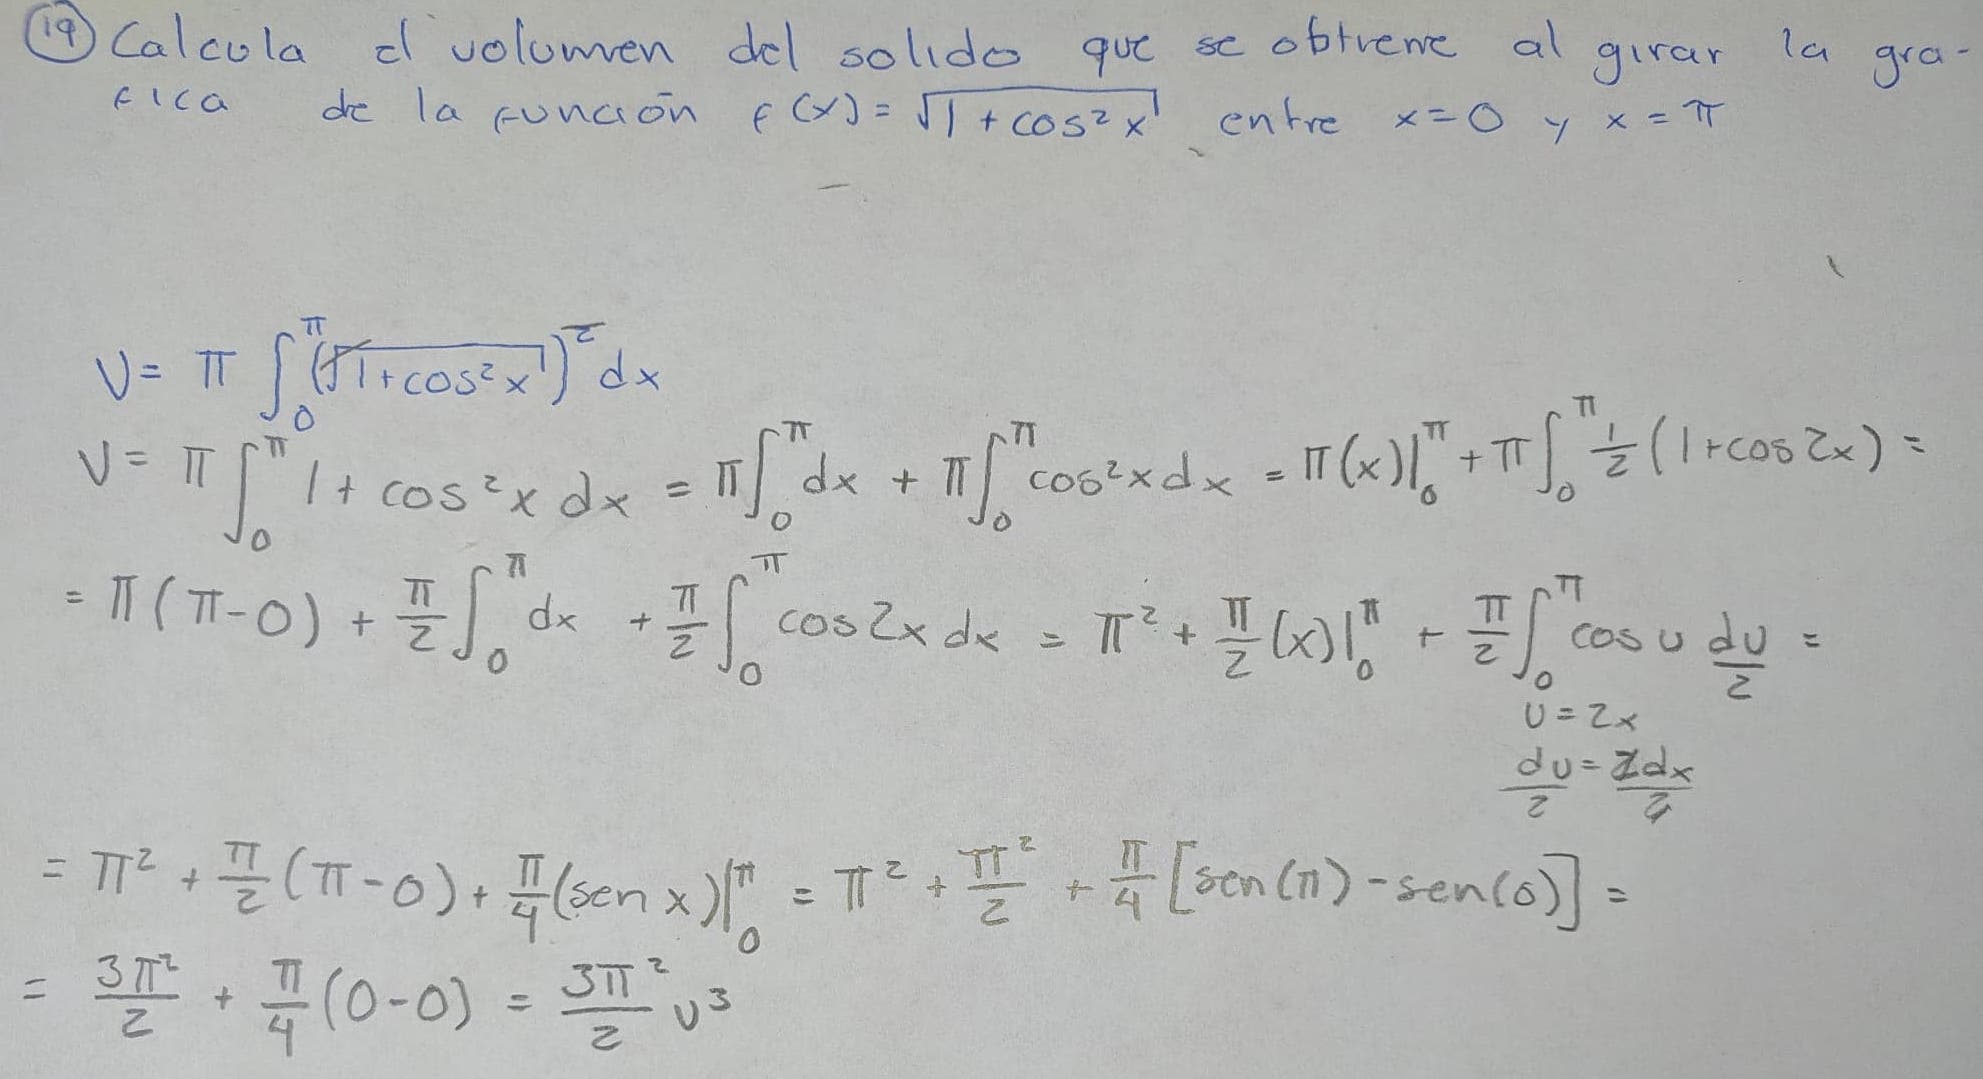 19 Calcula el volumen del solido que se obtiene al girar la gra-
fica de la función f(x) = √(1 + cos² x) entre x=0 y x = π
V = π ∫₀^π (√(1+cos² x))² dx
V = π ∫₀^π 1 + cos² x dx = π ∫₀^π dx + π ∫₀^π cos² x dx = π(x)|₀^π + π ∫₀^π 1/2 (1+cos 2x) =
= π(π-0) + π/2 ∫₀^π dx + π/2 ∫₀^π cos 2x dx = π² + π/2 (x)|₀^π + π/2 ∫₀^π cos u du/2 =
u = 2x
du/2 = 2dx/2
= π² + π/2 (π-0) + π/4 (sen x)|₀^π = π² + π²/2 + π/4 [sen(π) - sen(0)] =
= 3π²/2 + π/4 (0-0) = 3π²/2 u³